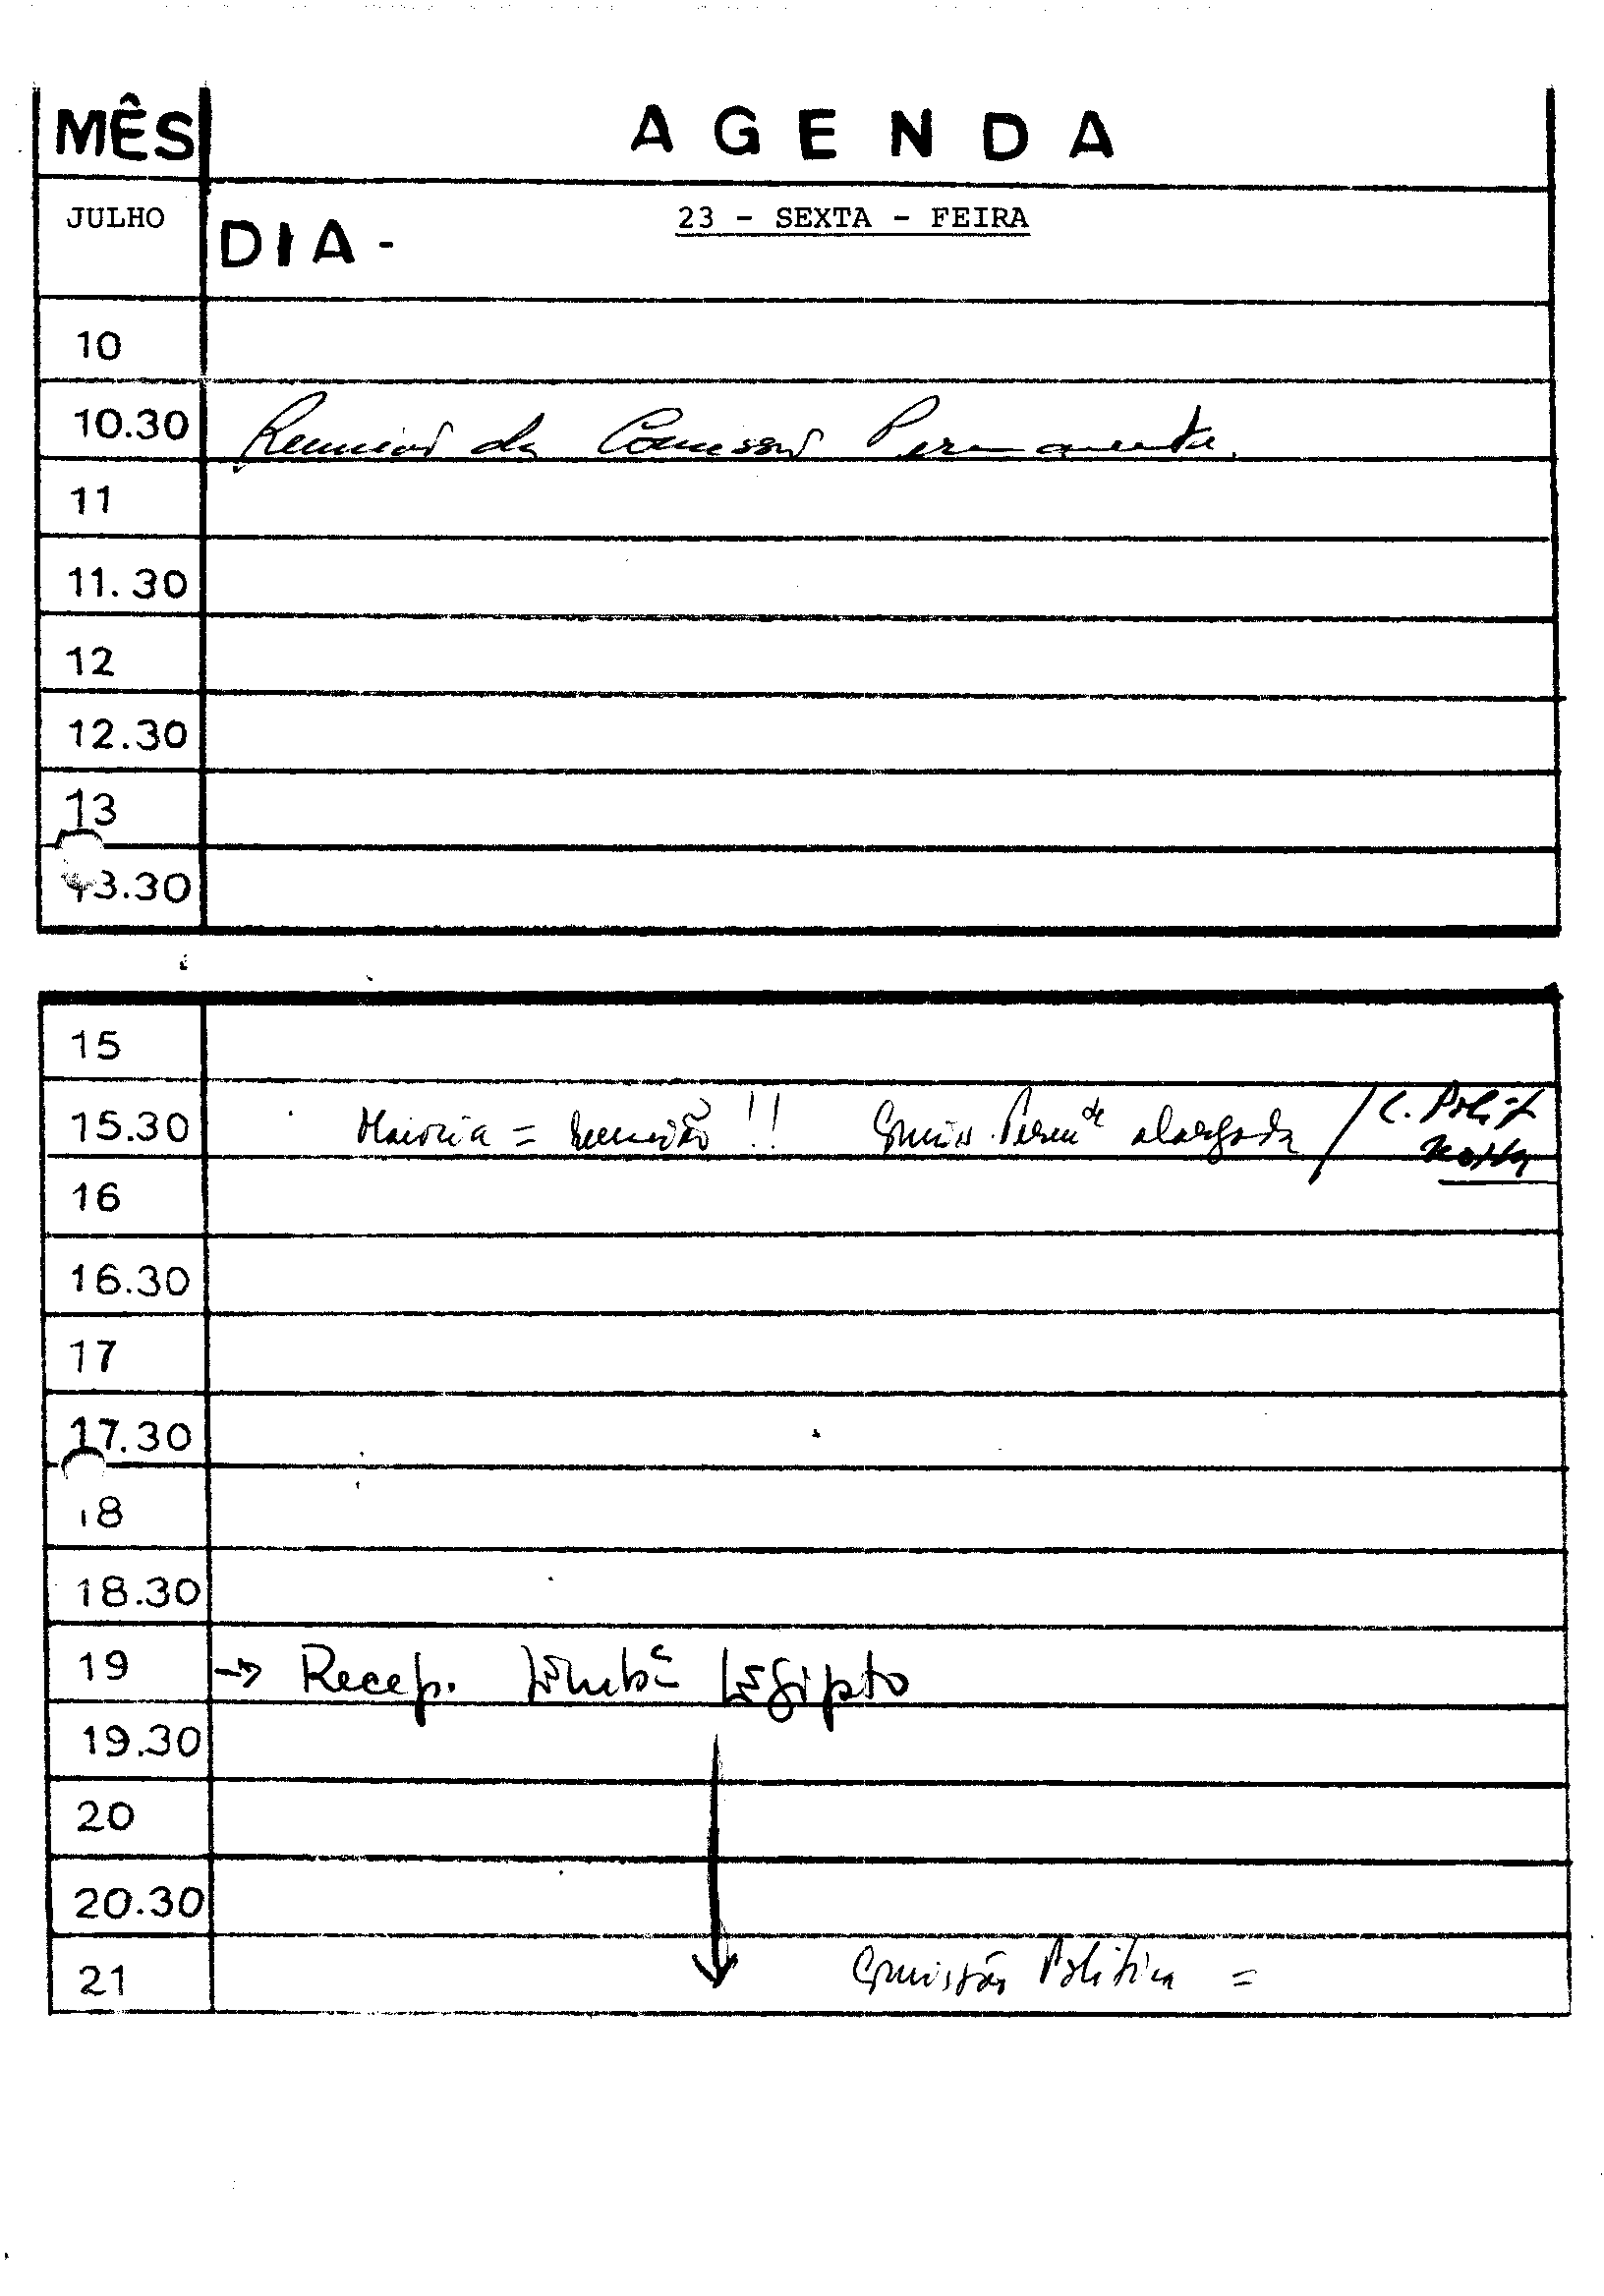 MÊS AGENDA
JULHO DIA - 23 - SEXTA - FEIRA
10
10.30 Reunião da Comissão Permanente.
11
11.30
12
12.30
13
13.30
15
15.30 Maioria = Reunião !! Comissão Perm de alargada / C. Polít
16
16.30
17
17.30
18
18.30
19 → Recep. Embª Egipto
19.30
20
20.30
21 Comissão Política =